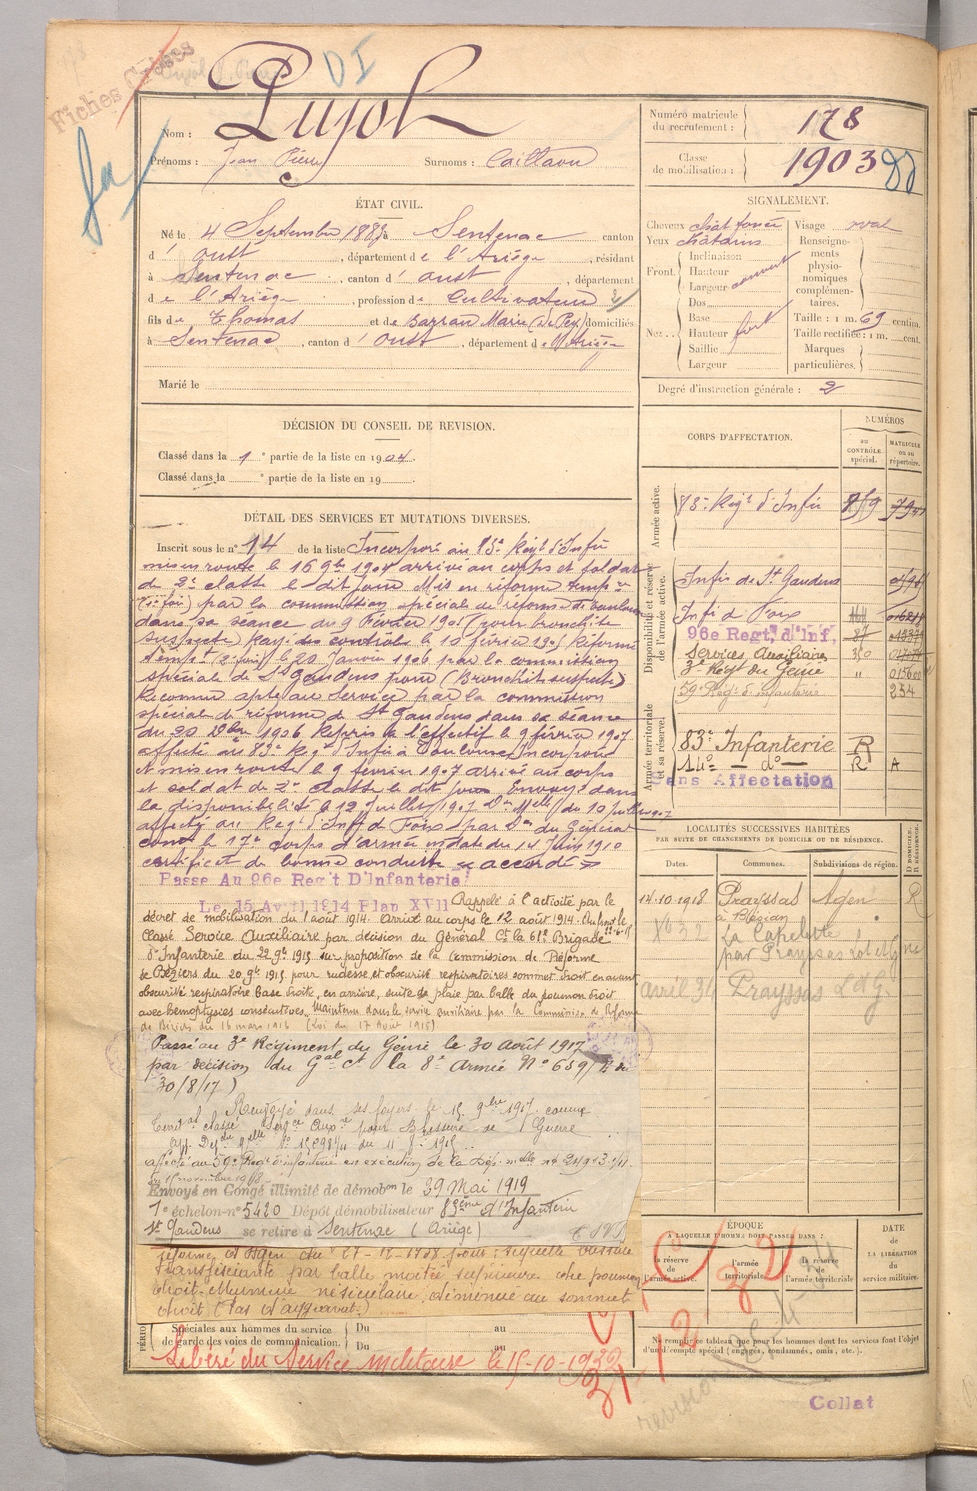 Fiches Créées
DI
Pujol
Nom :
Prénoms : Jean Pierre Surnoms : Caillaou
Numéro matricule du recrutement : 178
Classe de mobilisation : 1903
ÉTAT CIVIL.
Né le 4 Septembre 1883 à Sentenac canton
d' Oust , département de l'Ariège , résidant
à Sentenac , canton d' Oust , département
de l'Ariège , profession de Cultivateur
fils de Thomas et de Barrau Marie domiciliés
à Sentenac , canton d' Oust , département de l'Ariège
Marié le
SIGNALEMENT.
Cheveux chât foncé Visage oval
Yeux châtains Renseignements physionomiques complémentaires.
Front. Inclinaison
Hauteur
Largeur couvert
Nez... Dos
Base
Hauteur fort
Saillie
Largeur
Taille : 1 m. 69 centim.
Taille rectifiée : 1 m. cent.
Marques particulières.
Degré d'instruction générale : 2
DÉCISION DU CONSEIL DE REVISION.
Classé dans la 1e partie de la liste en 1904.
Classé dans la e partie de la liste en 19 .
DÉTAIL DES SERVICES ET MUTATIONS DIVERSES.
Inscrit sous le n° 14 de la liste Incorporé au 83e Régt d'Infie
mis en route le 16 9bre 1904 arrivé au corps et soldat
de 2e classe le dit jour Mis en réforme tempre
(1e fois) par la commission spéciale de réforme de Toulouse
dans sa séance du 9 Février 1905 (pour bronchite
suspecte) Rayé des contrôles le 10 février 1905 Réformé
tempt 2e fois le 20 Janvier 1906 par la commission
spéciale de St Gaudens pour (Bronchite suspecte)
Reconnu apte au service par la commission
spéciale de réforme de St Gaudens dans sa séance
du 20 Xbre 1906 Repris à l'effectif le 9 février 1907
affecté au 83e Régt d'Infie à Toulouse Incorporé
et mis en route le 9 février 1907 arrivé au corps
et soldat de 2e classe le dit jour Envoyé dans
la disponibilité le 12 Juillet 1907 Don Melle du 10 Juillet 1907
affecté au Régt d'Inf de Foix par Don du Général
Comt le 17e corps d'armée en date du 14 Juin 1910
certificat de bonne conduite « accordé »
Passe Au 96e Reg't D'Infanterie
Le 15 Avril 1914 Plan XVII Rappelé à l'activité par le
décret de mobilisation du 1 août 1914. Arrivé au corps le 12 août 1914.
Classé Service Auxiliaire par décision du Général Ct la 61e Brigade
d'Infanterie du 22 9bre 1915 sur proposition de la Commission de Réforme
de Béziers du 20 9bre 1915 pour rudesse et obscurité respiratoires sommet droit en avant
obscurité respiratoire base droite, en arrière, suite de plaie par balle du poumon droit
avec hémoptysies consécutives. Maintenu dans le service auxiliaire par la Commission de Réforme
de Béziers du 16 mars 1916 (Loi du 17 Août 1915)
Passé au 3e Régiment du Génie le 30 Août 1917
par décision du Gal Ct la 8e Armée N° 659
30/8/17)
Renvoyé dans ses foyers le 15 9bre 1917 comme
pour Blessure de Guerre
affecté au 59e Régt d'infanterie en exécution de la
Envoyé en Congé illimité de démobon le 29 Mai 1919
1° échelon-n° 5420 Dépôt démobilisateur 83ème d'Infanterie
St Gaudens se retire à Sentenac (Ariège)
transfixiante par balle moitié supérieure du poumon
droit. Murmure vésiculaire diminué au sommet
droit
Spéciales aux hommes du service de garde des voies de communication.
Du au
Du au
Libéré du Service militaire le 15-10-1932
CORPS D'AFFECTATION.
NUMÉROS
AU CONTRÔLE spécial.
MATRICULE ou au répertoire.
Armée active.
83e Régt d'Infie
Disponibilité et réserve de l'armée active.
Infie de St Gaudens
Infie de Foix
96e Regt, d'Inf, 87
Services Auxiliaires
3e Régt du Génie " 
59e Régt d'infanterie 254
Armée territoriale et sa réserve.
83e Infanterie R
14e — do — R A
Sans Affectation
LOCALITÉS SUCCESSIVES HABITÉES
PAR SUITE DE CHANGEMENTS DE DOMICILE OU DE RÉSIDENCE.
Dates. Communes. Subdivisions de région. D. DOMICILE. R. RÉSIDENCE.
14.10.1918 Prayssas Agen R
La Capelette
par Prayssas Lot et G
avril 34 Prayssas L d G.
ÉPOQUE
A LAQUELLE L'HOMME DOIT PASSER DANS :
la réserve de l'armée active. l'armée territoriale. la réserve de l'armée territoriale
DATE DE LA LIBÉRATION du service militaire.
Ne remplir ce tableau que pour les hommes dont les services font l'objet
d'un décompte spécial (engagés, condamnés, omis, etc.).
revision
Collat